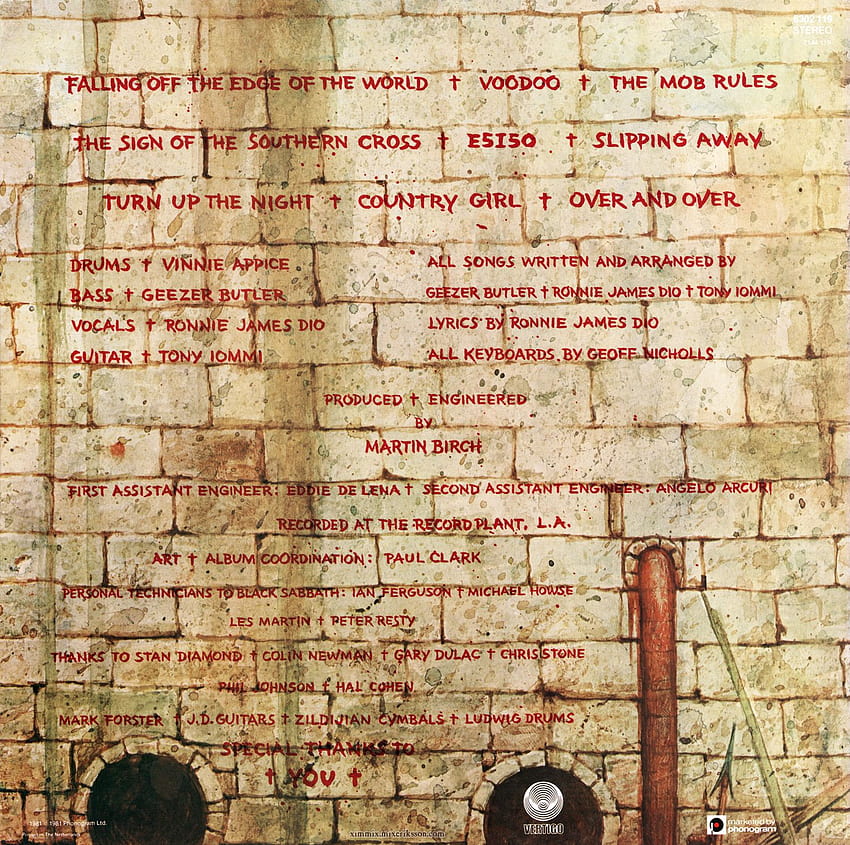 6302 119
STEREO
FALLING OFF THE EDGE OF THE WORLD † VOODOO † THE MOB RULES
THE SIGN OF THE SOUTHERN CROSS † E5150 † SLIPPING AWAY
TURN UP THE NIGHT † COUNTRY GIRL † OVER AND OVER
DRUMS † VINNIE APPICE
BASS † GEEZER BUTLER
VOCALS † RONNIE JAMES DIO
GUITAR † TONY IOMMI
ALL SONGS WRITTEN AND ARRANGED BY
GEEZER BUTLER † RONNIE JAMES DIO † TONY IOMMI
LYRICS BY RONNIE JAMES DIO
ALL KEYBOARDS BY GEOFF NICHOLLS
PRODUCED † ENGINEERED
BY
MARTIN BIRCH
FIRST ASSISTANT ENGINEER: EDDIE DE LENA † SECOND ASSISTANT ENGINEER: ANGELO ARCURI
RECORDED AT THE RECORD PLANT, L.A.
ART † ALBUM COORDINATION: PAUL CLARK
PERSONAL TECHNICIANS TO BLACK SABBATH: IAN FERGUSON † MICHAEL HOWSE
LES MARTIN † PETER RESTY
THANKS TO STAN DIAMOND † COLIN NEWMAN † GARY DULAC † CHRIS STONE
PHIL JOHNSON † HAL COHEN
MARK FORSTER † J.D. GUITARS † ZILDIJIAN CYMBALS † LUDWIG DRUMS
SPECIAL THANKS TO
† YOU †
1981 Phonogram Ltd.
Printed in The Netherlands
ximmix.mixeriksson.com
VERTIGO
marketed by
phonogram